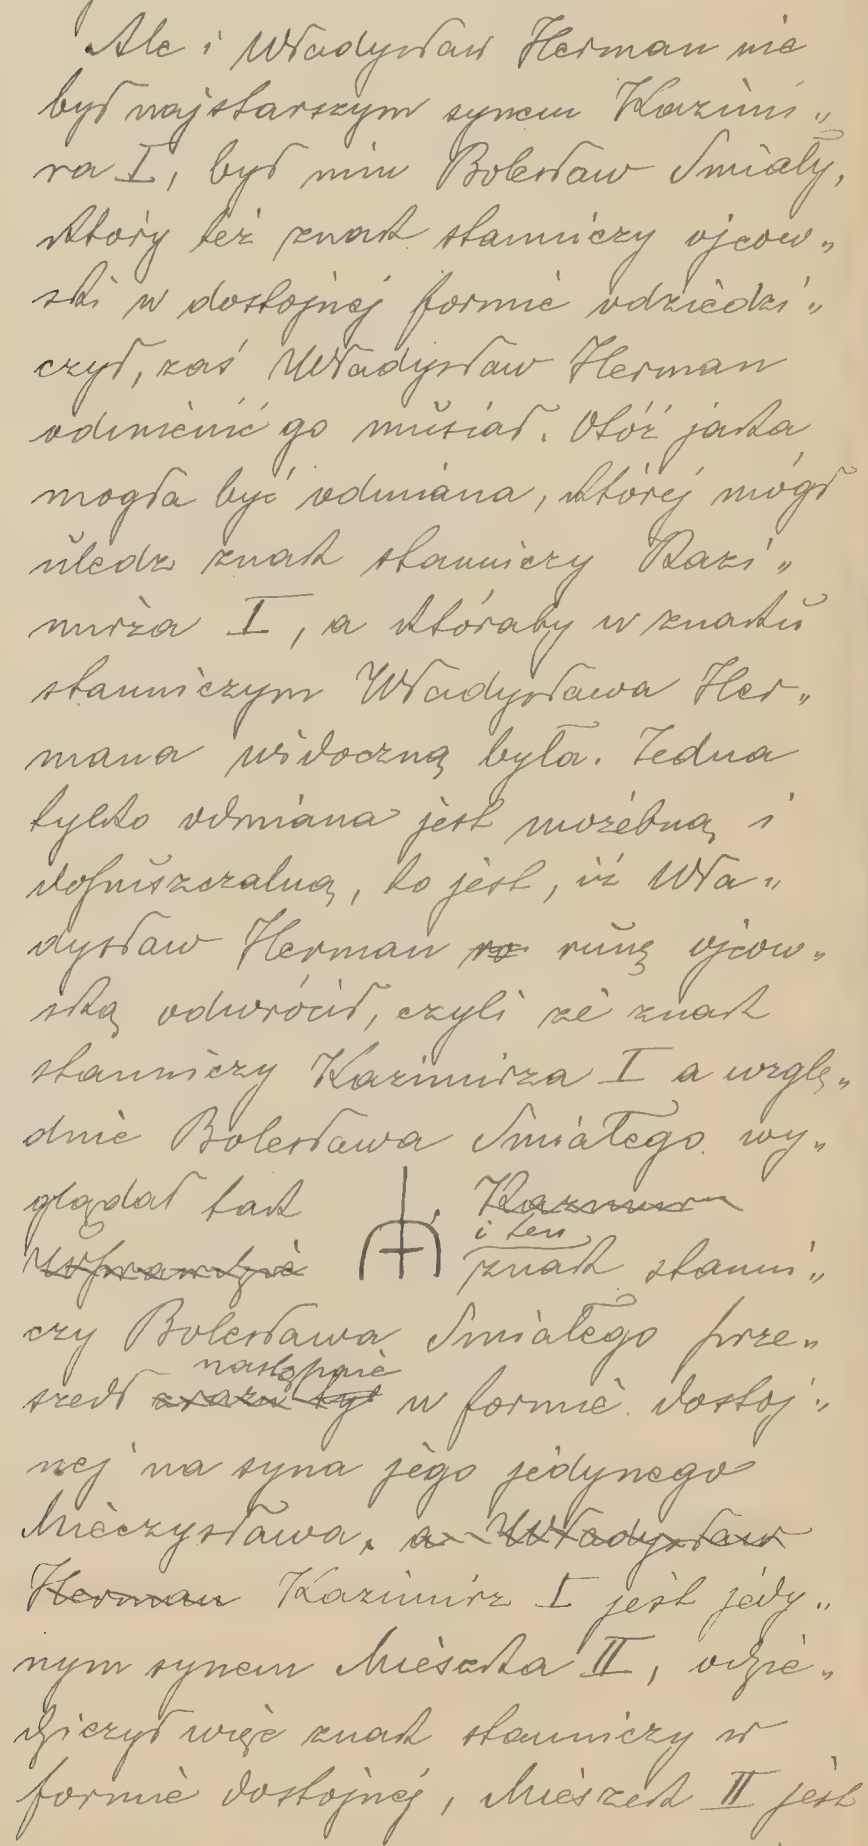 Ale i Władysław Herman nie
był najstarszym synem Kazimi„
ra I, był nim Bolesław Smiały,
który też znak stanniczy ojcow„
ski w dostojnej formie odziedzi„
czył, zaś Władysław Herman
odmienić go musiał. Otóż jaka
mogła być odmiana, której mógł
uledz znak stanniczy Kazi„
mirza I, a któraby w znaku
stanniczym Władysława Her„
mana widoczną była. Jedna
tylko odmiana jest możebną i
dopuszczalną, to jest, iż Wła„
dysław Herman ro runę ojcow„
ską odwrócił, czyli że znak
stanniczy Kazimirza I a wzglę„
dnie Bolesława Smiałego wy„
glądał tak , Kazimirz
i ten
Wprawdzie znak stanni„
czy Bolesława Smiałego prze„
następnie
szedł w formie dostoj„
nej na syna jego jedynego
Mieczysława, a Władysław
Herman Kazimirz I jest jedy„
nym synem Mieszka II, odzie„
dziczył więc znak stanniczy w
formie dostojnej, Mieszek II jest